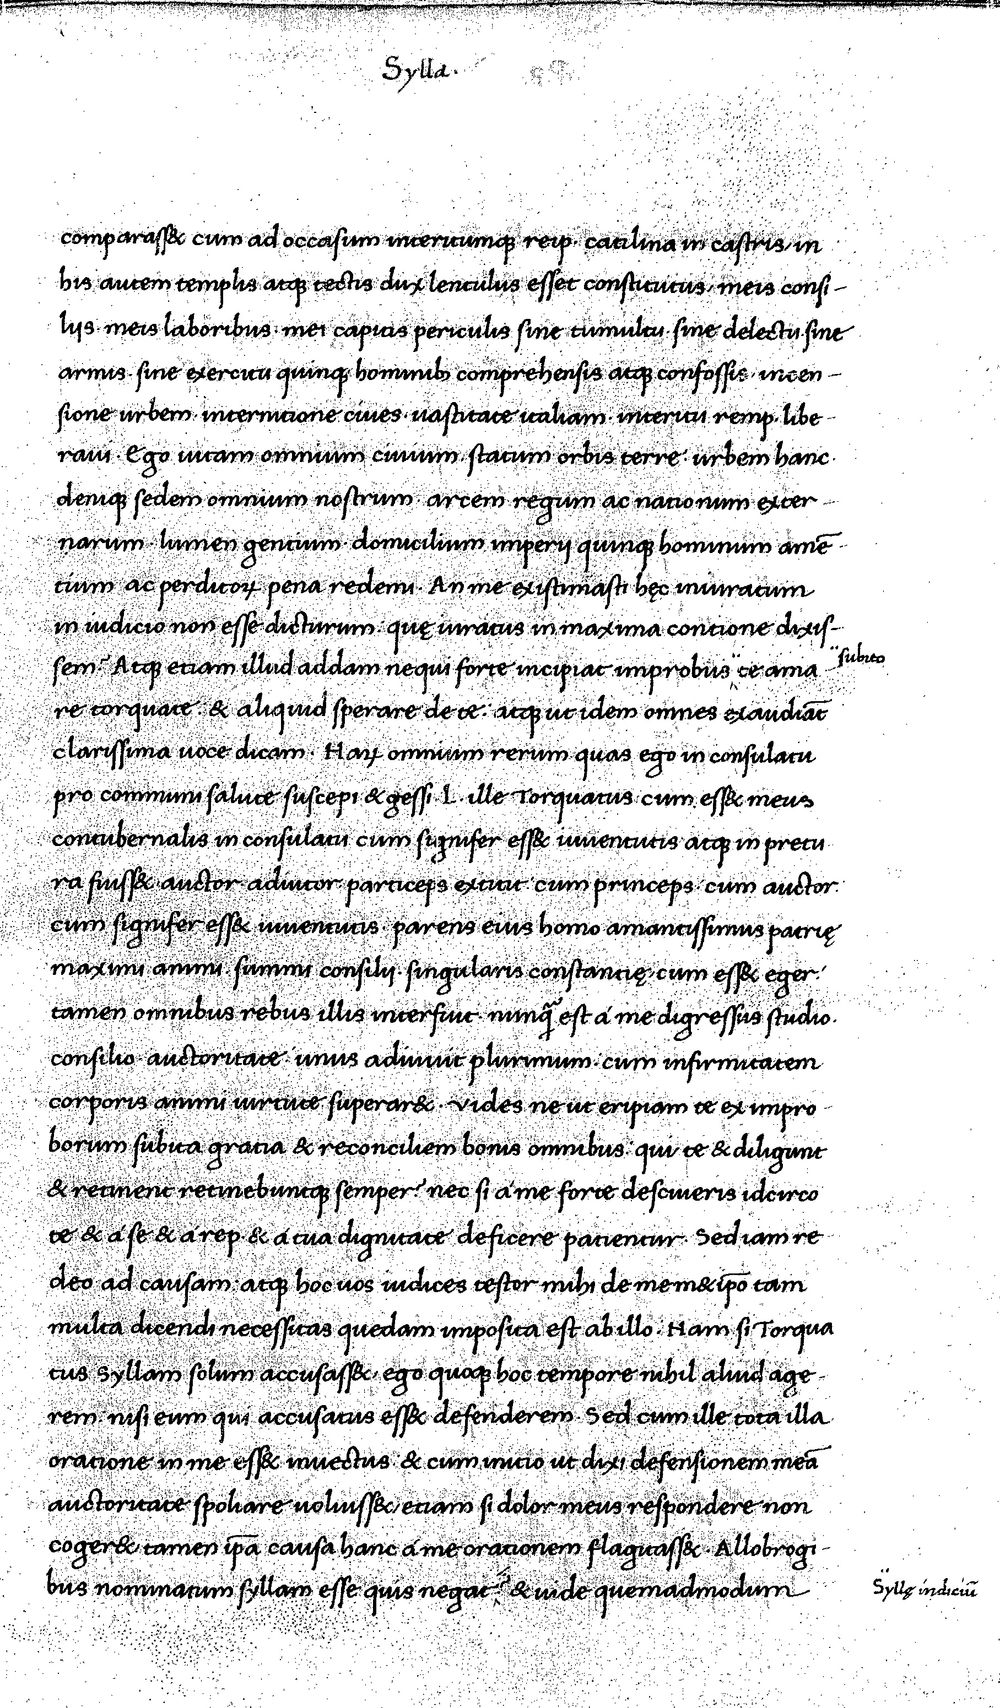 Sylla.
comparass& cum ad occasum interitumq; reip. catilina in castris, in
his autem templis atq; tectis dux lentulus esset constitutus, meis consi-
liis. meis laboribus. mei capitis periculis sine tumultu. sine delectu. sine
armis. sine exercitu quinq; hominib; comprehensis atq; confossis. incen-
sione urbem. internitione ciues. uastitate italiam. interitu remp. libe-
raui. Ego uitam omnium ciuium. statum orbis terre. urbem hanc.
deniq; sedem omnium nostrum. arcem regum ac nationum exter-
narum. lumen gentium. domicilium imperij quinq; hominum amē-
tium ac perditoꝝ pena redemi. An me existimasti hęc iniuratum
in iudicio non esse dicturum. quę iuratus in maxima contione dixis-
sem? Atq; etiam illud addam nequi forte incipiat improbus" te ama
"subito
re torquate. & aliquid sperare de te. atq; ut idem omnes exaudiāt
clarissima uoce dicam. Haꝝ omnium rerum quas ego in consulatu
pro communi salute suscepi & gessi. L. ille Torquatus cum ess& meus
contubernalis in consulatu cum signifer ess& iuuentutis atq; in pretu
ra fuiss& auctor adiutor particeps extitit. cum princeps. cum auctor.
cum signifer ess& iuuentutis. parens eius homo amantissimus patrię
maximi animi. summi consilij. singularis constantię, cum ess& eger.
tamen omnibus rebus illis interfuit. nunq̃ est á me digressus studio.
consilio. auctoritate. unus adiuuit plurimum. cum infirmitatem
corporis animi uirtute superar&. Vides ne ut eripiam te ex impro-
borum subita gratia & reconciliem bonis omnibus. qui te & diligunt
& retinent retinebuntq; semper? nec si á me forte desciueris idcirco
te & á se & á rep & á tua dignitate deficere patientur. Sed iam re-
deo ad causam. atq; hoc uos iudices testor mihi de mem& ip̄o tam
multa dicendi necessitas quedam imposita est ab illo. Nam si Torqua
tus syllam solum accusass&, ego quoq; hoc tempore nihil aliud age-
rem. nisi eum qui accusatus ess& defenderem. Sed cum ille tota illa
oratione in me ess& inuectus. & cum initio ut dixi defensionem meā
auctoritate spoliare uoluiss&, etiam si dolor meus respondere non
coger&, tamen ip̄a causa hanc á me orationem flagitass&. Allobrogi-
bus nominatum syllam esse quis negat"? & uide quemadmodum
"Syllę indiciū